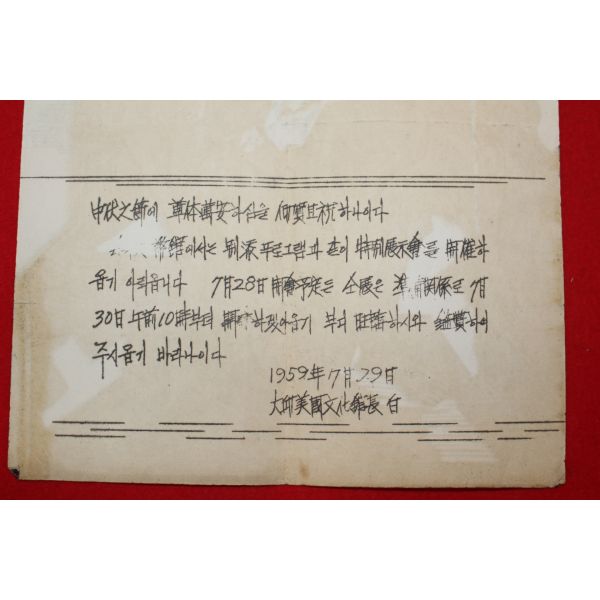 中伏之節에 尊体萬安하심을 仰賀且祝하나이다
舘에서는 別添프로그람과 같이 特別展示會를 開催하
옵기 아뢰옵니다 7月28日 開會予定든 仝展은 準備關係로 7月
30日 午前10時부터 하겠아옵기 부디 하시와 鑑賞하여
주시옵기 바라나이다
1959年 7月 29日
大邱美國文化舘長 白